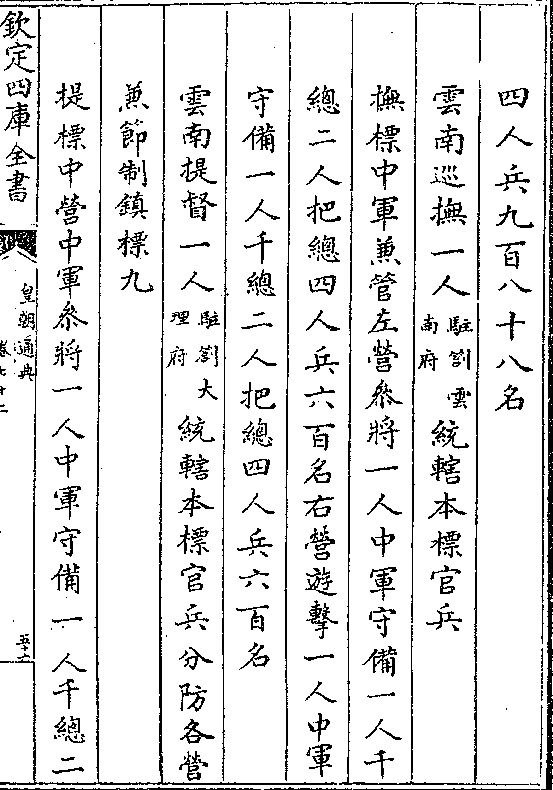 四人兵九百八十八名
雲南巡撫一人駐劄雲南府統轄本標官兵
撫標中軍兼管左營叅將一人中軍守備一人千
總二人把總四人兵六百名右營遊擊一人中軍
守備一人千總二人把總四人兵六百名
雲南提督一人駐劄大理府統轄本標官兵分防各營
兼節制鎮標九
提標中營中軍叅將一人中軍守備一人千總二
欽定四庫全書
皇朝通典